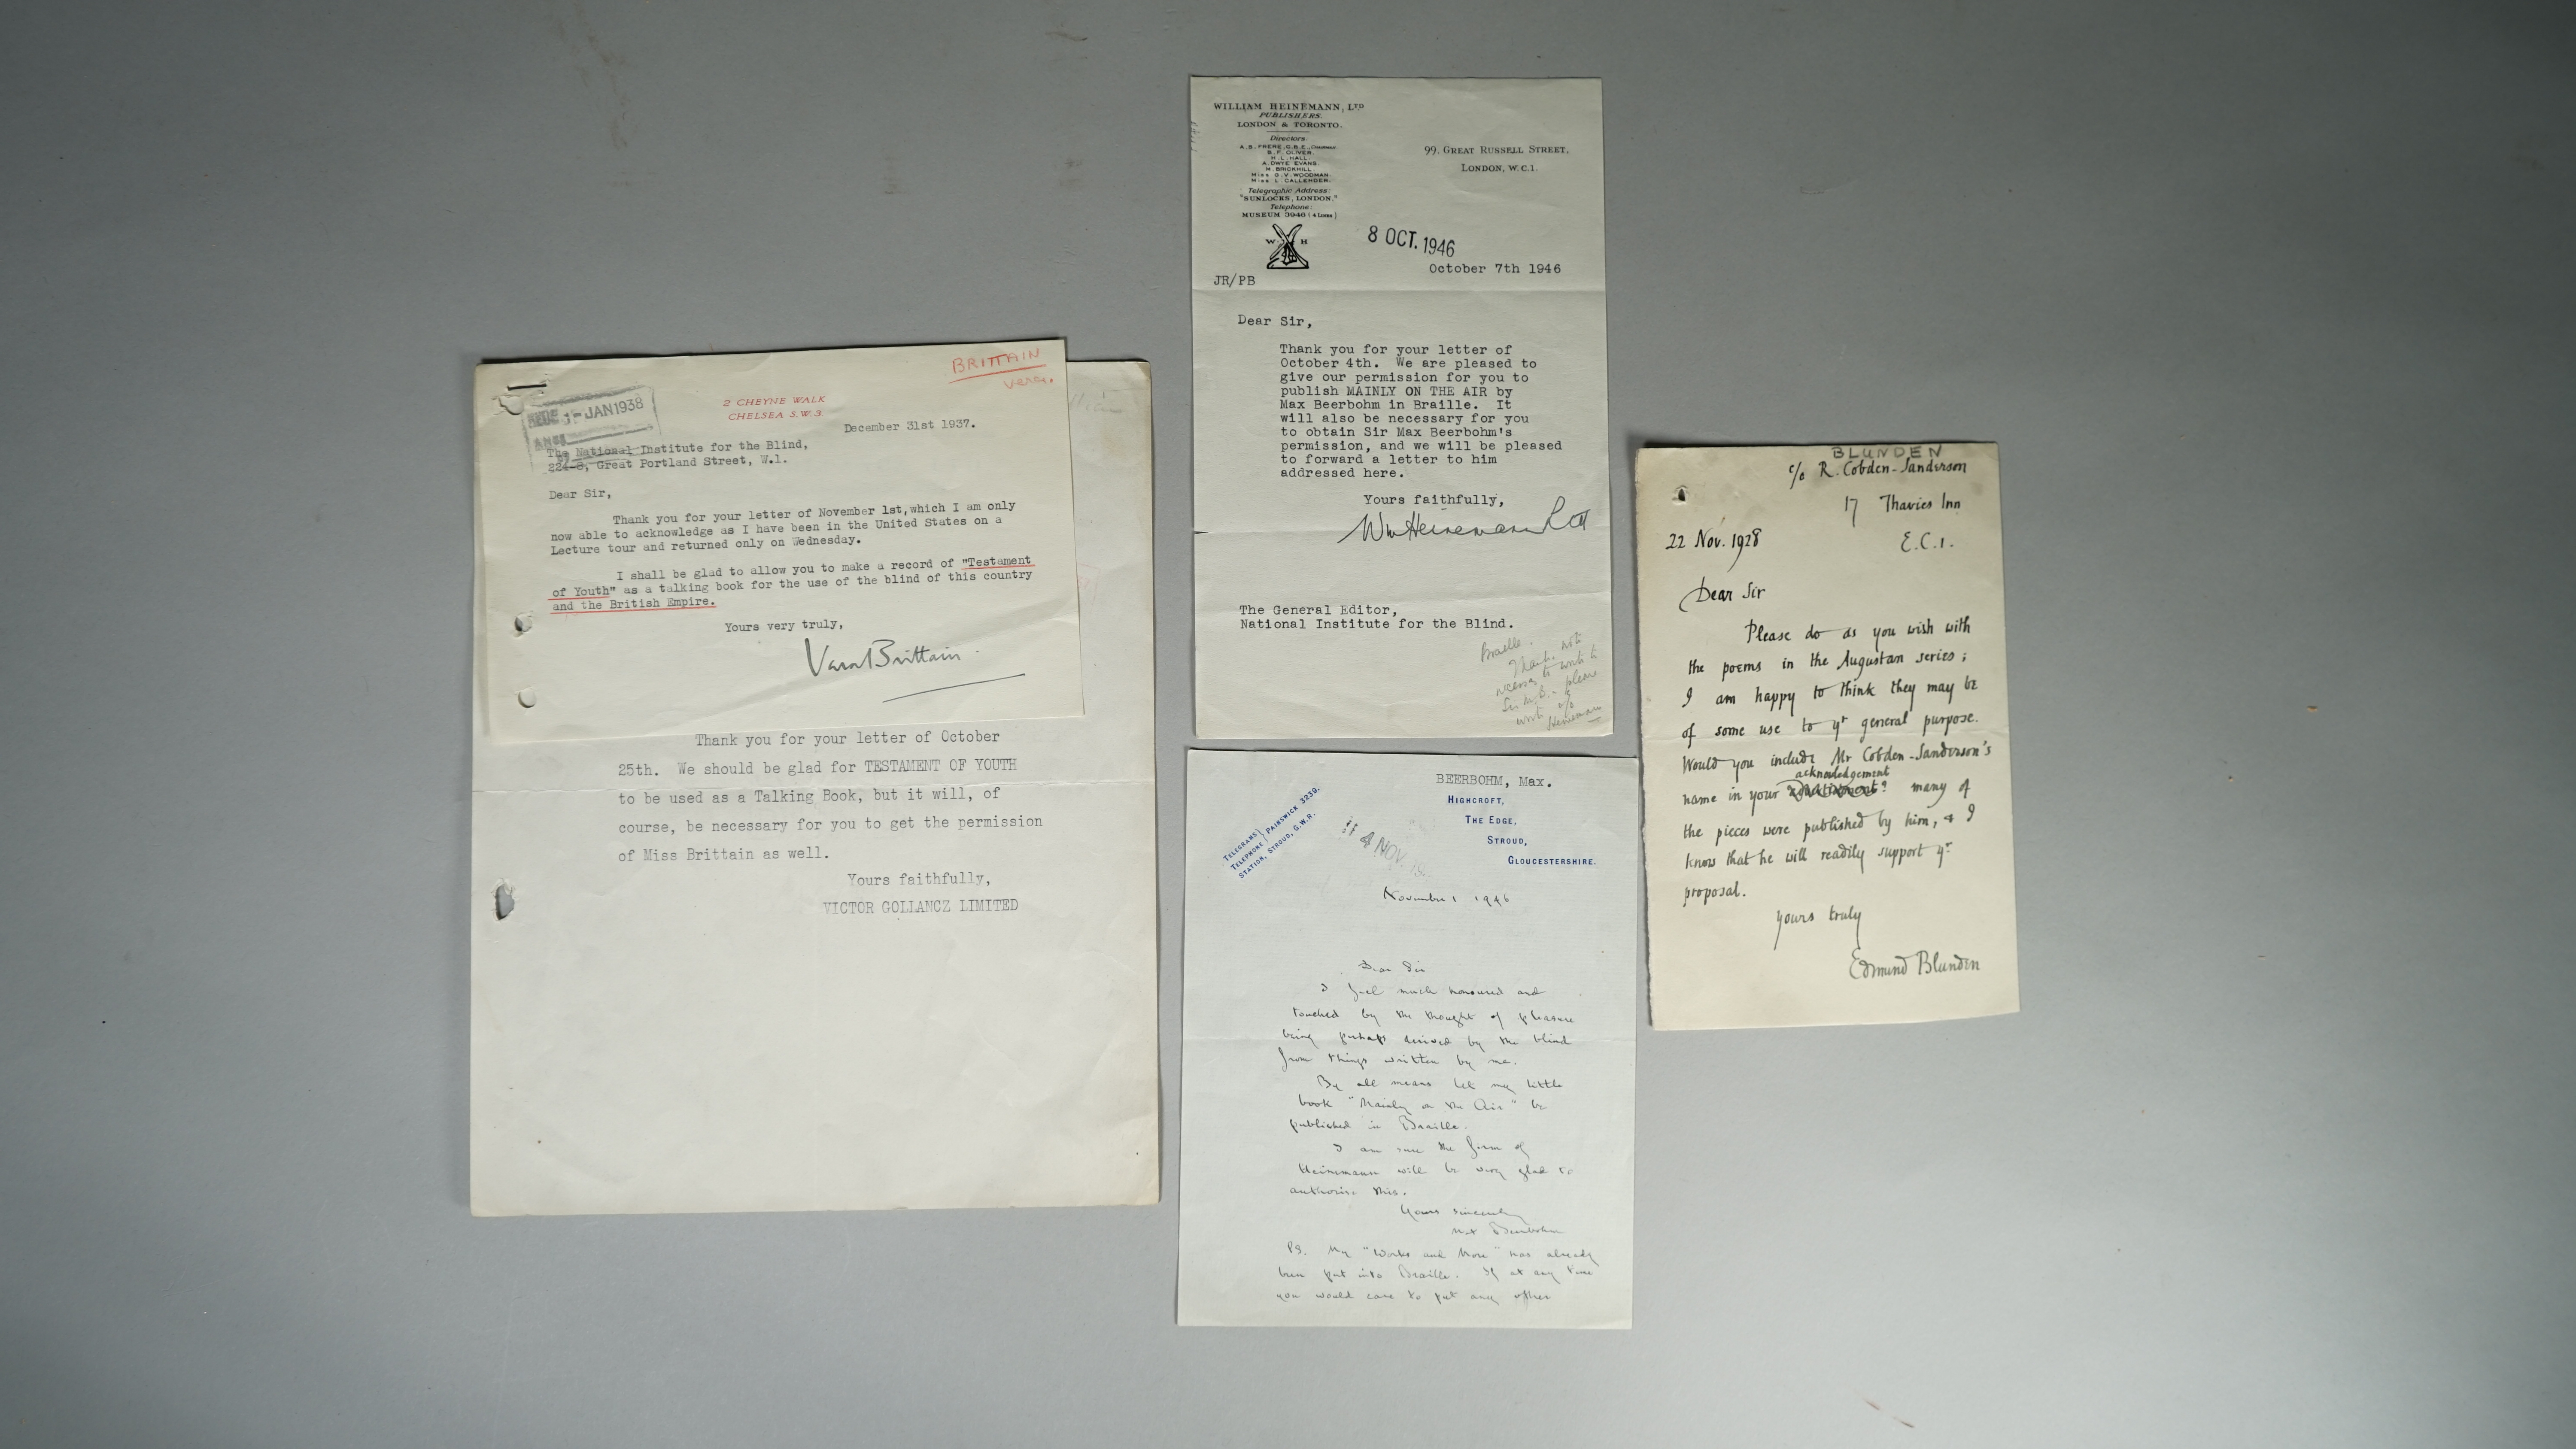 BRITTAIN
Vera.
1-JAN 1938
2 CHEYNE WALK
CHELSEA S.W.3.
December 31st 1937.
The National Institute for the Blind,
224-8, Great Portland Street, W.1.
Dear Sir,
Thank you for your letter of November 1st, which I am only
now able to acknowledge as I have been in the United States on a
Lecture tour and returned only on Wednesday.
I shall be glad to allow you to make a record of "Testament
of Youth" as a talking book for the use of the blind of this country
and the British Empire.
Yours very truly,
Vera Brittain
Thank you for your letter of October
25th. We should be glad for TESTAMENT OF YOUTH
to be used as a Talking Book, but it will, of
course, be necessary for you to get the permission
of Miss Brittain as well.
Yours faithfully,
VICTOR GOLLANCZ LIMITED
WILLIAM HEINEMANN, LTD
PUBLISHERS.
LONDON & TORONTO.
Directors:
A.S. FRERE, C.B.E., Chairman.
B.F. OLIVER.
H.L. HALL.
A. DWYE EVANS.
M. BRICKHILL.
Miss G.V. WOODMAN.
Miss L. CALLENDER.
Telegraphic Address:
"SUNLOCKS, LONDON."
Telephone:
MUSEUM 3946 (4 Lines)
W H
99, GREAT RUSSELL STREET,
LONDON, W.C.1.
8 OCT. 1946
October 7th 1946
JR/PB
Dear Sir,
Thank you for your letter of
October 4th. We are pleased to
give our permission for you to
publish MAINLY ON THE AIR by
Max Beerbohm in Braille. It
will also be necessary for you
to obtain Sir Max Beerbohm's
permission, and we will be pleased
to forward a letter to him
addressed here.
Yours faithfully,
Wm Heinemann Ltd
The General Editor,
National Institute for the Blind.
Braille.
Thank. note
necessary to write to
Sir M.B. - please
write c/o
Heinemann
BEERBOHM, Max.
TELEGRAMS
TELEPHONE PAINSWICK 3239.
STATION, STROUD, G.W.R.
HIGHCROFT,
THE EDGE,
STROUD,
GLOUCESTERSHIRE.
4 NOV. 19
November 1 1946
Dear Sir
I feel much honoured and
touched by the thought of pleasure
being perhaps derived by the blind
from things written by me.
By all means let my little
book "Mainly on the Air" be
published in Braille.
I am sure the firm of
Heinemann will be very glad to
authorise this.
Yours sincerely
Max Beerbohm
PS. My "Works and More" has already
been put into Braille. If at any time
you would care to put any other
BLUNDEN
c/o R. Cobden-Sanderson
17 Thavies Inn
E.C.1.
22 Nov. 1928
Dear Sir
Please do as you wish with
the poems in the Augustan series;
I am happy to think they may be
of some use to yr general purpose.
Would you include Mr Cobden-Sanderson's
acknowledgement
name in your ? many of
the pieces were published by him, & I
know that he will readily support yr
proposal.
Yours truly
Edmund Blunden